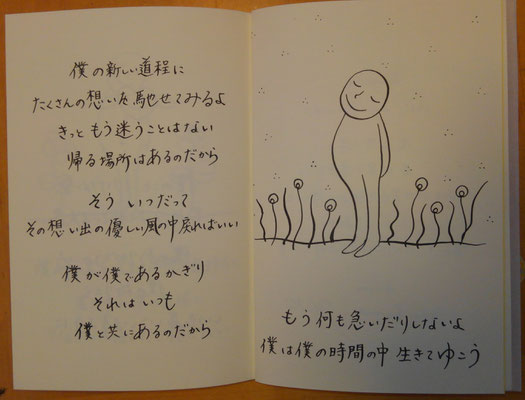 僕の新しい道程に
たくさんの想いを馳せてみるよ
きっと もう迷うことはない
帰る場所はあるのだから
そう いつだって
その想い出の優しい風の中戻ればいい
僕が僕であるかぎり
それはいつも
僕と共にあるのだから
もう何も急いだりしないよ
僕は僕の時間の中 生きてゆこう